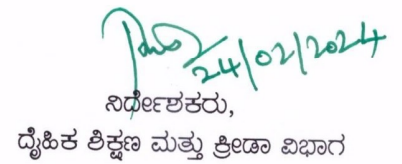 24/02/2024
ನಿರ್ದೇಶಕರು,
ದೈಹಿಕ ಶಿಕ್ಷಣ ಮತ್ತು ಕ್ರೀಡಾ ವಿಭಾಗ